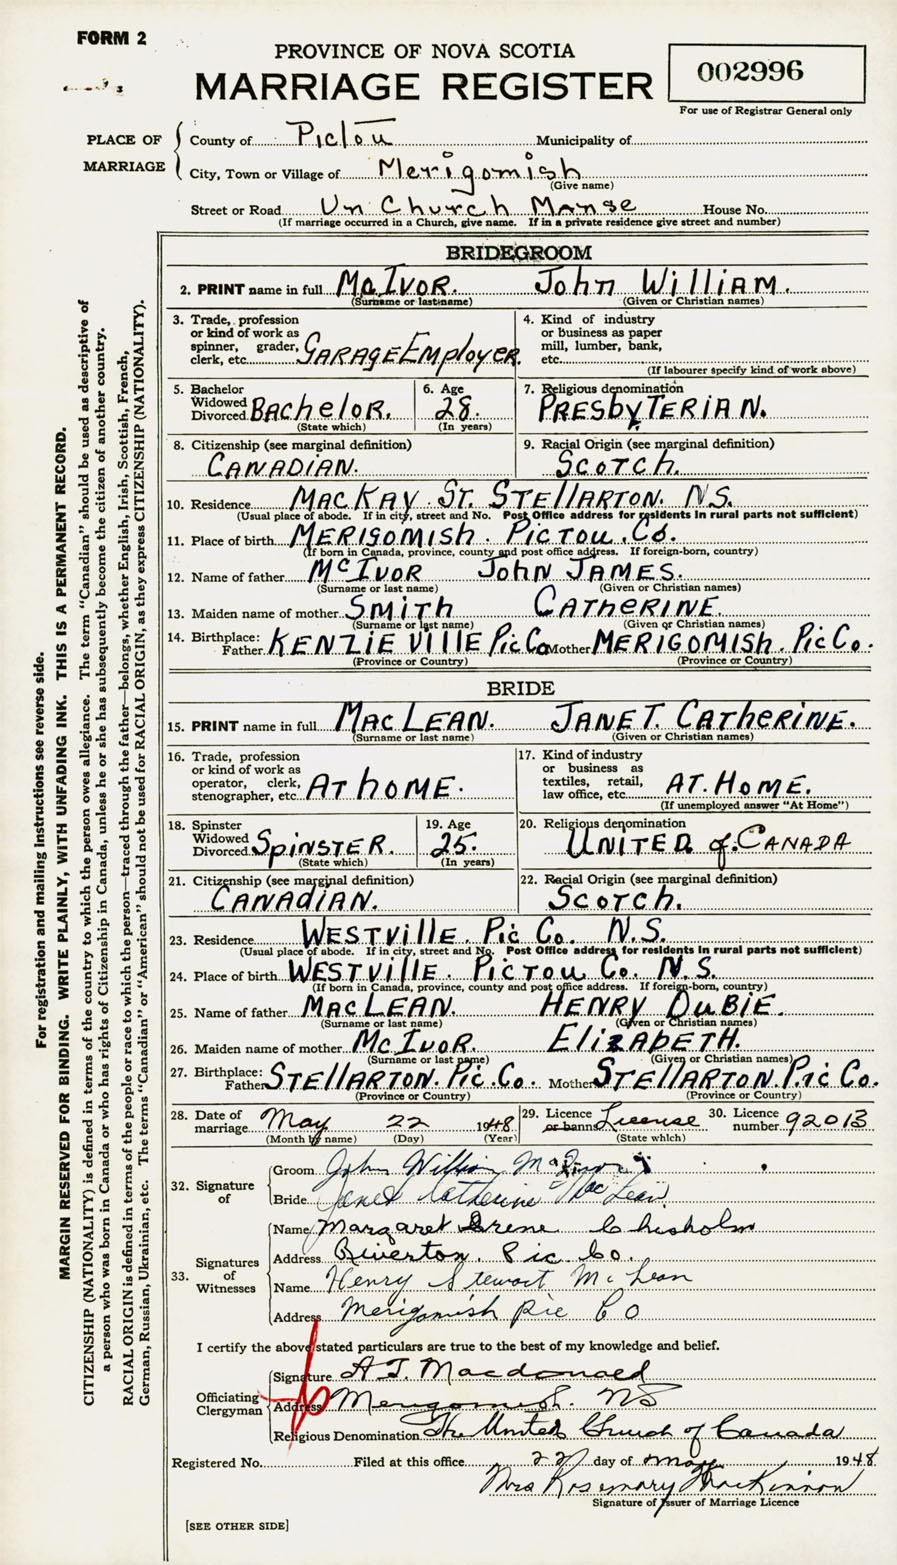 FORM 2
PROVINCE OF NOVA SCOTIA
MARRIAGE REGISTER
002996
For use of Registrar General only
PLACE OF MARRIAGE
County of Pictou Municipality of
City, Town or Village of Merigomish
(Give name)
Street or Road Un Church Manse House No.
(If marriage occurred in a Church, give name. If in a private residence give street and number)
BRIDEGROOM
2. PRINT name in full McIVOR. John WilliAM.
(Surname or last name) (Given or Christian names)
3. Trade, profession or kind of work as spinner, grader, clerk, etc. GARAGE EMployER
4. Kind of industry or business as paper mill, lumber, bank, etc.
(If labourer specify kind of work above)
5. Bachelor Widowed Divorced BAchelOR.
(State which)
6. Age 28.
(In years)
7. Religious denomination PRESbyTERIAN.
8. Citizenship (see marginal definition)
CANADIAN.
9. Racial Origin (see marginal definition)
SCOTCH.
10. Residence MACKAY ST. STEllARTON. N.S.
(Usual place of abode. If in city, street and No. Post Office address for residents in rural parts not sufficient)
11. Place of birth MERIGOMISH. PICTOU. CO.
(If born in Canada, province, county and post office address. If foreign-born, country)
12. Name of father McIVOR JohN JAMES.
(Surname or last name) (Given or Christian names)
13. Maiden name of mother SMITH CATHERINE.
(Surname or last name) (Given or Christian names)
14. Birthplace: Father KENZIEVILLE Pic Co Mother MERIGOMISH. Pic Co.
(Province or Country) (Province or Country)
BRIDE
15. PRINT name in full MACLEAN. JANET. CATHERINE.
(Surname or last name) (Given or Christian names)
16. Trade, profession or kind of work as operator, clerk, stenographer, etc. AT hOME.
17. Kind of industry or business as textiles, retail, law office, etc. AT. HOME.
(If unemployed answer "At Home")
18. Spinster Widowed Divorced SpiNSTER.
(State which)
19. Age 25.
(In years)
20. Religious denomination
UNITED of CANADA
21. Citizenship (see marginal definition)
CANAdiAN.
22. Racial Origin (see marginal definition)
SCOTCH.
23. Residence WESTVillE. Pic Co. N.S.
(Usual place of abode. If in city, street and No. Post Office address for residents in rural parts not sufficient)
24. Place of birth WESTVillE. PICTOU CO. N.S.
(If born in Canada, province, county and post office address. If foreign-born, country)
25. Name of father MACLEAN. HENRY DUBIE.
(Surname or last name) (Given or Christian names)
26. Maiden name of mother McIVOR. ElizAbETH.
(Surname or last name) (Given or Christian names)
27. Birthplace: Father STEllARTON. Pic. Co. Mother STEllARTON. Pic Co.
(Province or Country) (Province or Country)
28. Date of marriage May 22 1948
(Month by name) (Day) (Year)
29. Licence or banns License
(State which)
30. Licence number 92013
32. Signature of
Groom John William McIvor
Bride Janet Catherine MacLean
33. Signatures of Witnesses
Name Margaret Irene Chisholm
Address Riverton. Pic. Co.
Name Henry Stewart McLean
Address Merigomish Pic Co
I certify the above stated particulars are true to the best of my knowledge and belief.
Officiating Clergyman
Signature A.J. Macdonald
Address Merigomish. NS
Religious Denomination The United Church of Canada
Registered No. Filed at this office 22 day of May 1948
Mrs Rosemary MacKinnon
Signature of Issuer of Marriage Licence
[SEE OTHER SIDE]
For registration and mailing instructions see reverse side.
MARGIN RESERVED FOR BINDING. WRITE PLAINLY, WITH UNFADING INK. THIS IS A PERMANENT RECORD.
CITIZENSHIP (NATIONALITY) is defined in terms of the country to which the person owes allegiance. The term "Canadian" should be used as descriptive of
a person who was born in Canada or who has rights of Citizenship in Canada, unless he or she has subsequently become the citizen of another country.
RACIAL ORIGIN is defined in terms of the people or race to which the person—traced through the father—belongs, whether English, Irish, Scottish, French,
German, Russian, Ukrainian, etc. The terms "Canadian" or "American" should not be used for RACIAL ORIGIN, as they express CITIZENSHIP (NATIONALITY).